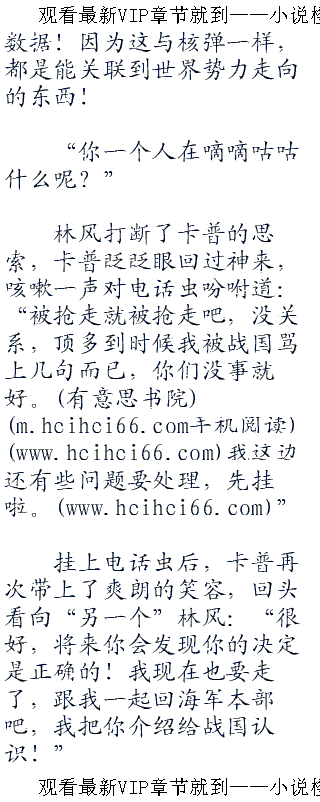 观看最新VIP章节就到——小说
数据！因为这与核弹一样，
都是能关联到世界势力走向
的东西！
“你一个人在嘀嘀咕咕
什么呢？”
林风打断了卡普的思
索，卡普眨眨眼回过神来，
咳嗽一声对电话虫吩咐道：
“被抢走就被抢走吧，没关
系，顶多到时候我被战国骂
上几句而已，你们没事就
好。(有意思书院)
(m.hcihci66.com手机阅读)
(www.hcihci66.com)我这边
还有些问题要处理，先挂
啦。(www.hcihci66.com)”
挂上电话虫后，卡普再
次带上了爽朗的笑容，回头
看向“另一个”林风：“很
好，将来你会发现你的决定
是正确的！我现在也要走
了，跟我一起回海军本部
吧，我把你介绍给战国认
识！”
观看最新VIP章节就到——小说